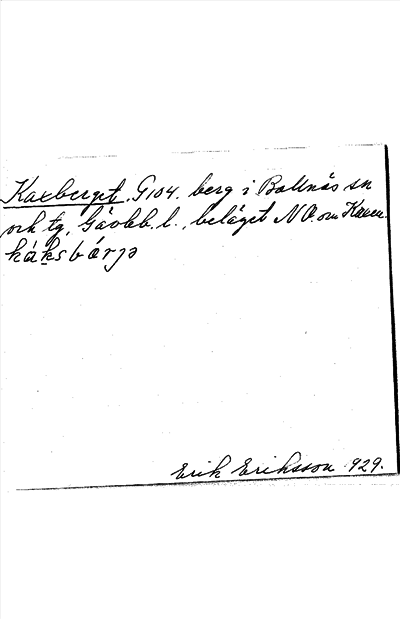 Kaxberget, G104. berg i Bollnäs sn
och tg, Gävleb. l., beläget NO. om Kaxen.
káksbárjə
Erik Eriksson 929.